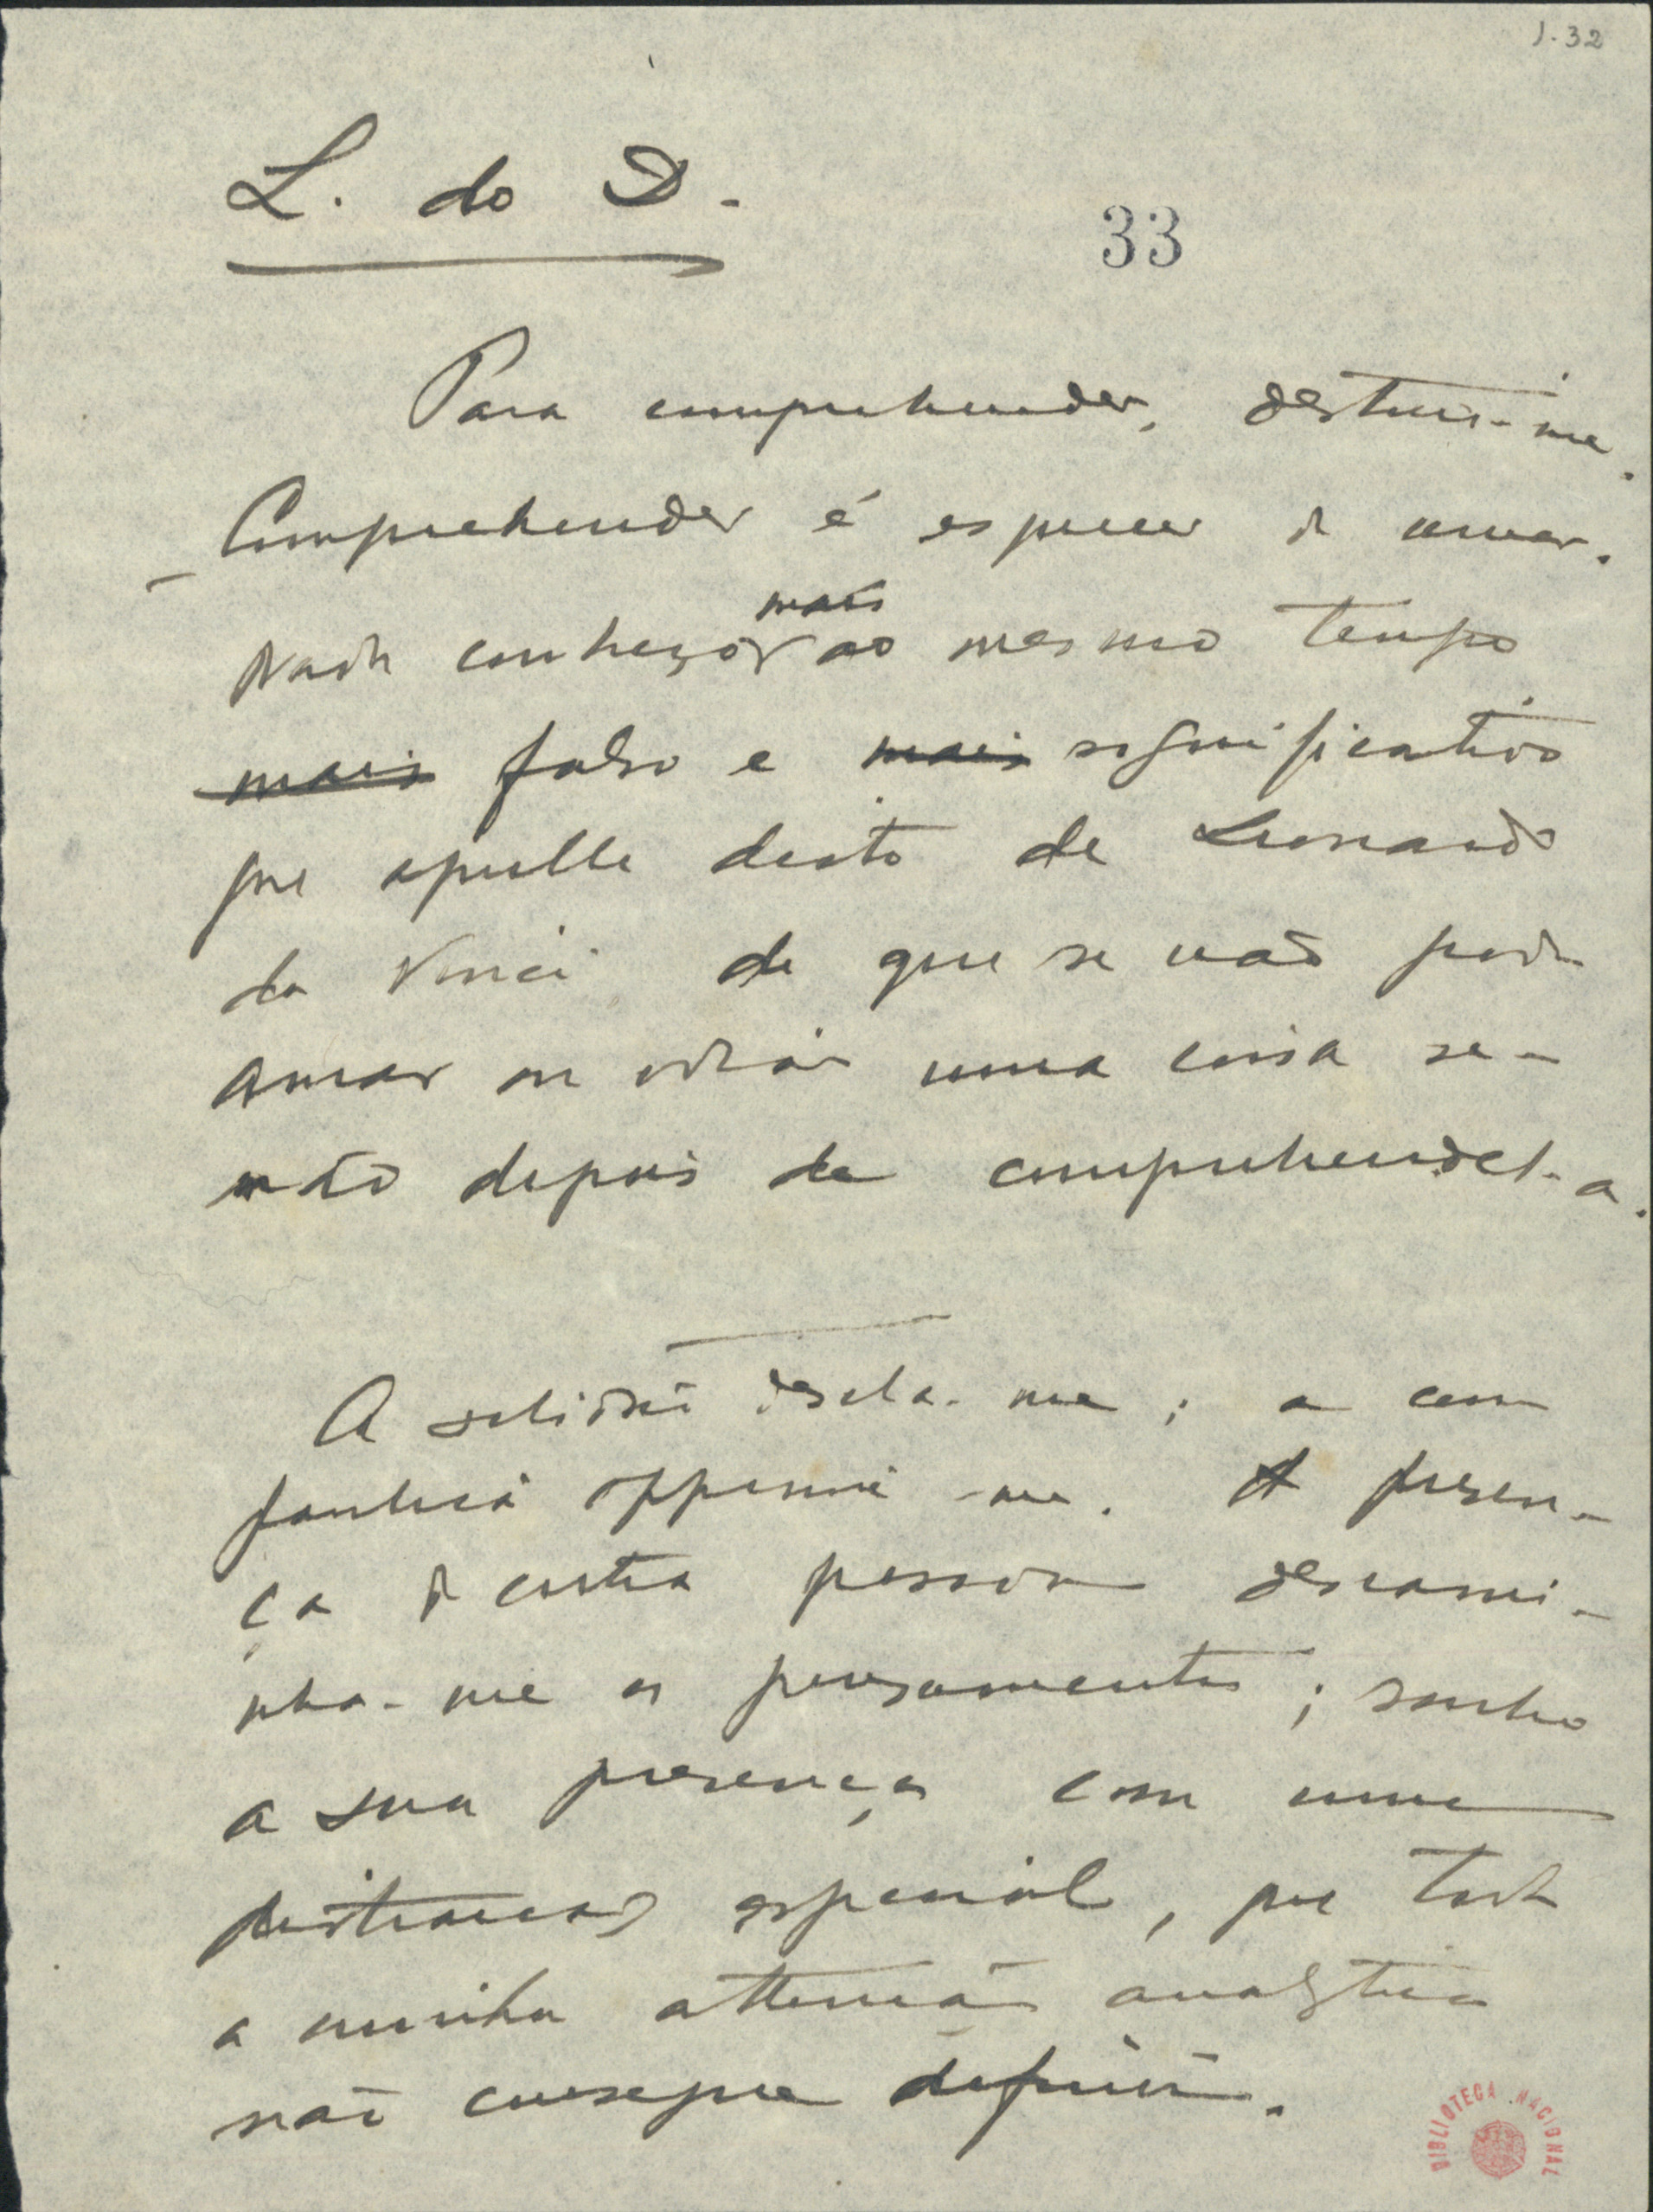 1-32
L. do D.
33
Para comprehender, destrui-me.
Comprehender é esquecer de amar.
Nada conheço mais ao mesmo tempo
mais falso e mais significativo
que aquelle dicto de Leonardo
da Vinci de que se não pode
amar ou odiar uma coisa se-
não depois de comprehendel-a.
A solidão desola-me; a com
panhia opprime-me. A presen-
ça de outra pessoa descami-
nha-me os pensamentos; sonho
a sua presença com uma
distracção especial, que toda
a minha attenção analytica
não consegue definir.
BIBLIOTECA NACIONAL